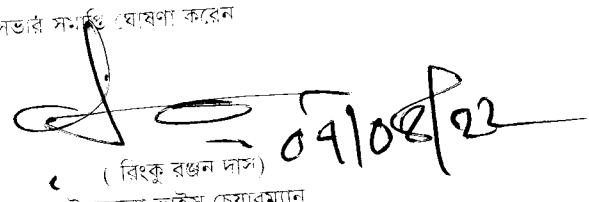 সভার সমাপ্তি ঘোষণা করেন
04/08/22
( রিংকু রঞ্জন দাস)
ভাইস চেয়ারম্যান